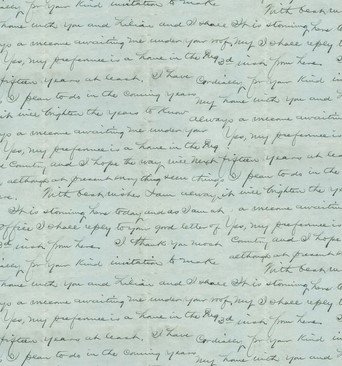 cordially for your kind invitation to make
With best w
my home with you and Lilian and I shall It is storming here to
always a welcome awaiting me under your roof, my I shall reply t
Yes, my preference is a home in the 3d inst from here.
fifteen years at least, I have Cordially for your kind in
I plan to do in the coming years my home with you and
it will brighten the years to know always a welcome awaiting
always a welcome awaiting me under your Yes, my preference is
Yes, my preference is a home in the fifteen years at lea
Country, and I hope the way will next I plan to do in the
although at present anything seen things it will brighten the y
With best wishes I am always,
It is storming here today and as I am at a welcome awaiting
office I shall reply to your good letter of Yes, my preference is
3d inst from here. I thank you most Country, and I hope
cordially for your kind invitation to make although at present
With best w
my home with you and Lilian and I shall It is storming here
always a welcome awaiting me under your roof, my I shall reply t
Yes, my preference is a home in the 3d inst from here.
fifteen years at least, I have Cordially for your kind
I plan to do in the coming years my home with you and L